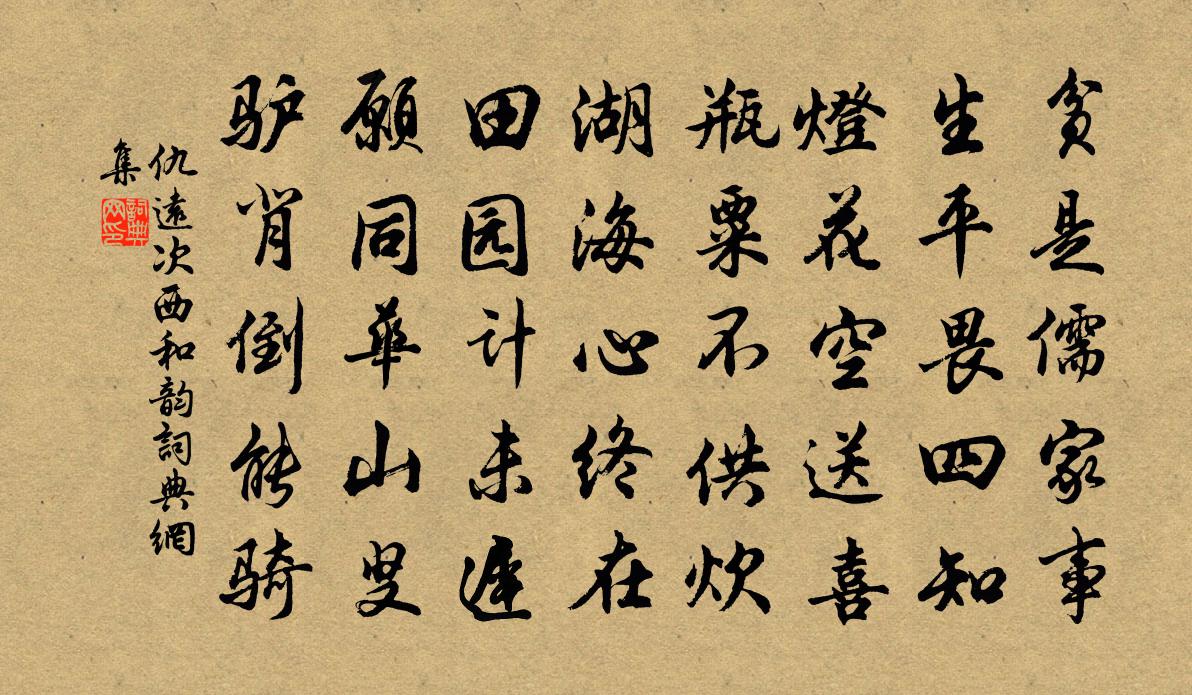 贫是儒家事
生平畏四知
燈花空送喜
瓶粟不供炊
湖海心终在
田园计未遅
願同華山叟
驴背倒能骑
仇遠次西和韵詞典網
集
詞典網印